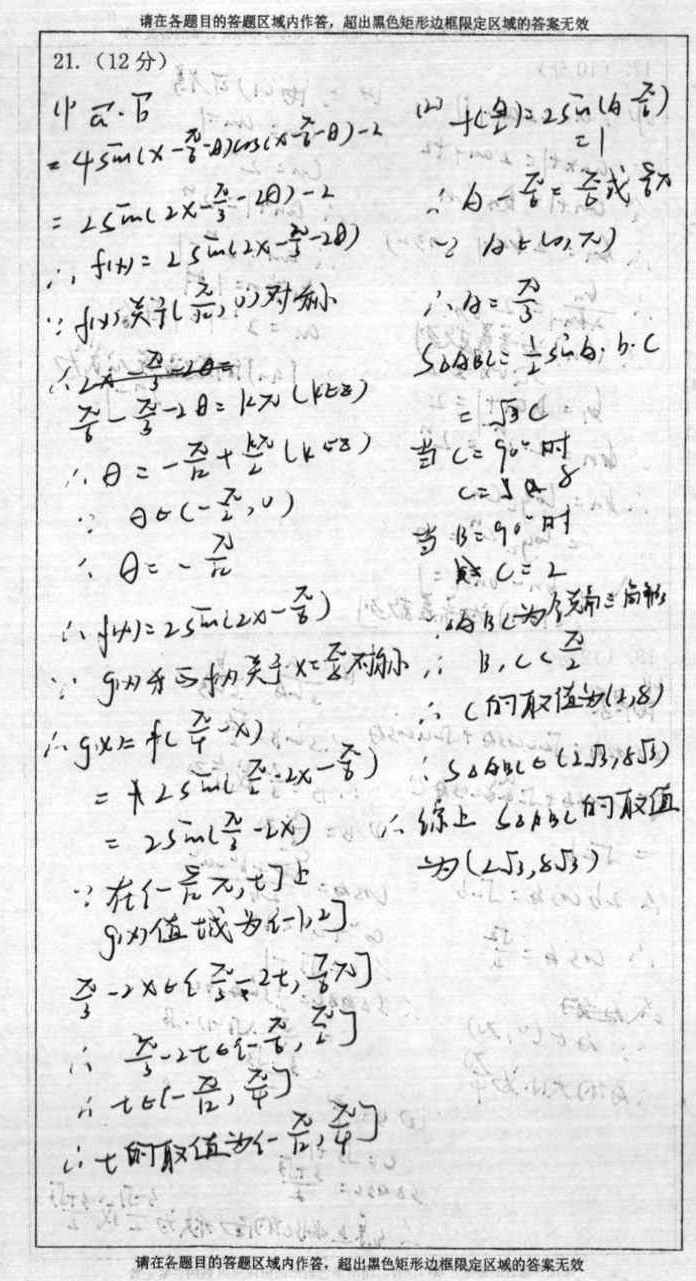 请在各题目的答题区域内作答，超出黑色矩形边框限定区域的答案无效
21.（12分）
(1) a⃗·b⃗
=4sin(x-π/6-θ)cos(x-π/6-θ)-2
=2sin(2x-π/3-2θ)-2
∴ f(x)=2sin(2x-π/3-2θ)
∵ f(x)关于(π/12,0)对称
∴ 2x-π/3-2θ=
π/6-π/3-2θ=kπ(k∈z)
∴ θ=-π/12+kπ/2(k∈z)
∵ θ∈(-π/2,0)
∴ θ=-π/12
∴ f(x)=2sin(2x-π/6)
∵ g(x)与f(x)关于x=π/8对称
∴ g(x)=f(π/4-x)
=2sin(π/2-2x-π/6)
=2sin(π/3-2x)
∵ 在[-5/12π,t]上
g(x)值域为[-1,2]
π/3-2x∈[π/3-2t,7/6π]
∴ π/3-2t∈[-π/6,π/2]
∴ t∈[-π/12,π/4]
∴ t的取值为[-π/12,π/4]
(2) f(A/2)=2sin(A-π/6)
=1
∴ A-π/6=π/6或5/6π
∵ A∈(0,π)
∴ A=π/3
S△ABC=1/2sinA·b·c
=√3c
当C=90°时
c=8
当B=90°时
c=2
∵ABC为锐角三角形
∴ B,C<π/2
∴ c的取值为(2,8)
∴ S△ABC∈(2√3,8√3)
∴ 综上 S△ABC的取值
为(2√3,8√3)
请在各题目的答题区域内作答，超出黑色矩形边框限定区域的答案无效